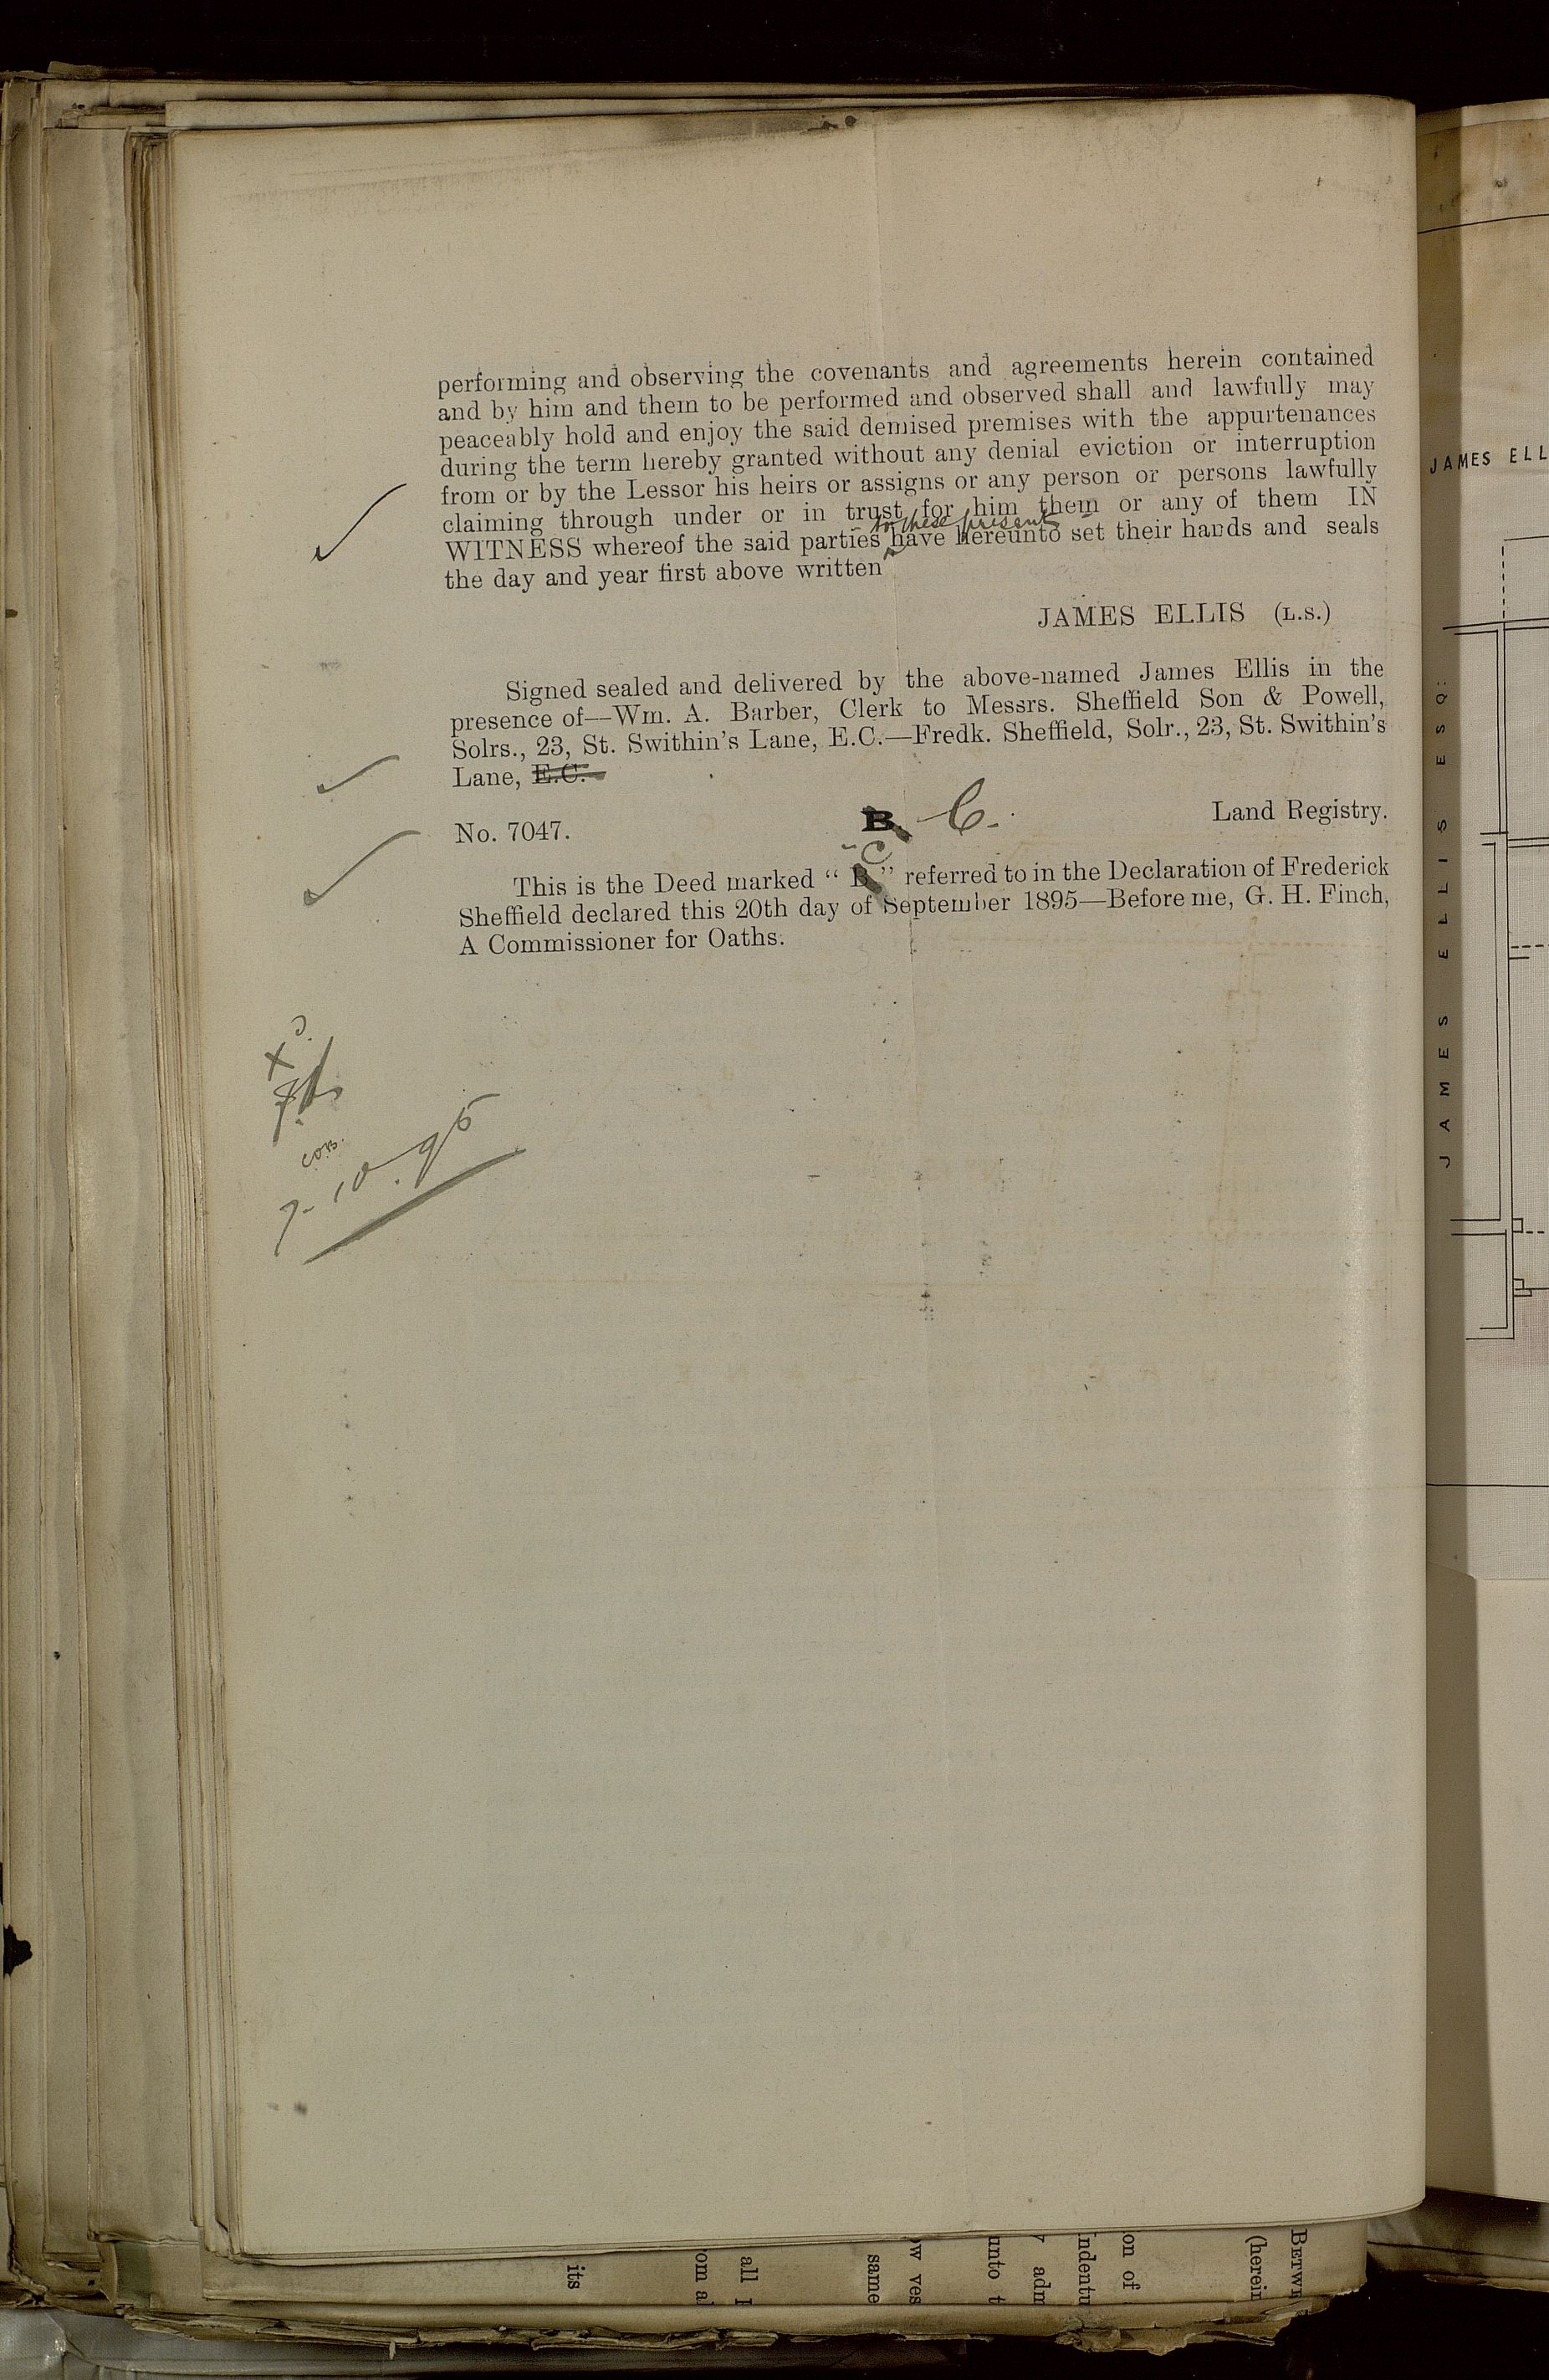 performing and observing the covenants and agreements herein contained
and by him and them to be performed and observed shall and lawfully may
peaceably hold and enjoy the said demised premises with the appurtenances
during the term hereby granted without any denial eviction or interruption
from or by the Lessor his heirs or assigns or any person or persons lawfully
claiming through under or in trust for him them or any of them IN
to these presents
WITNESS whereof the said parties have hereunto set their hands and seals
the day and year first above written
JAMES ELLIS (L.S.)
Signed sealed and delivered by the above-named James Ellis in the
presence of—Wm. A. Barber, Clerk to Messrs. Sheffield Son & Powell,
Solrs., 23, St. Swithin's Lane, E.C.—Fredk. Sheffield, Solr., 23, St. Swithin's
Lane, E.C.
No. 7047. B. C. Land Registry.
C
This is the Deed marked “ B ” referred to in the Declaration of Frederick
Sheffield declared this 20th day of September 1895—Before me, G. H. Finch,
A Commissioner for Oaths.
X
7-10.95
JAMES ELL
JAMES ELLIS ESQ:
its
om a
all
same
w ves
unto t
adm
ndentu
on of
(herein
BETWE